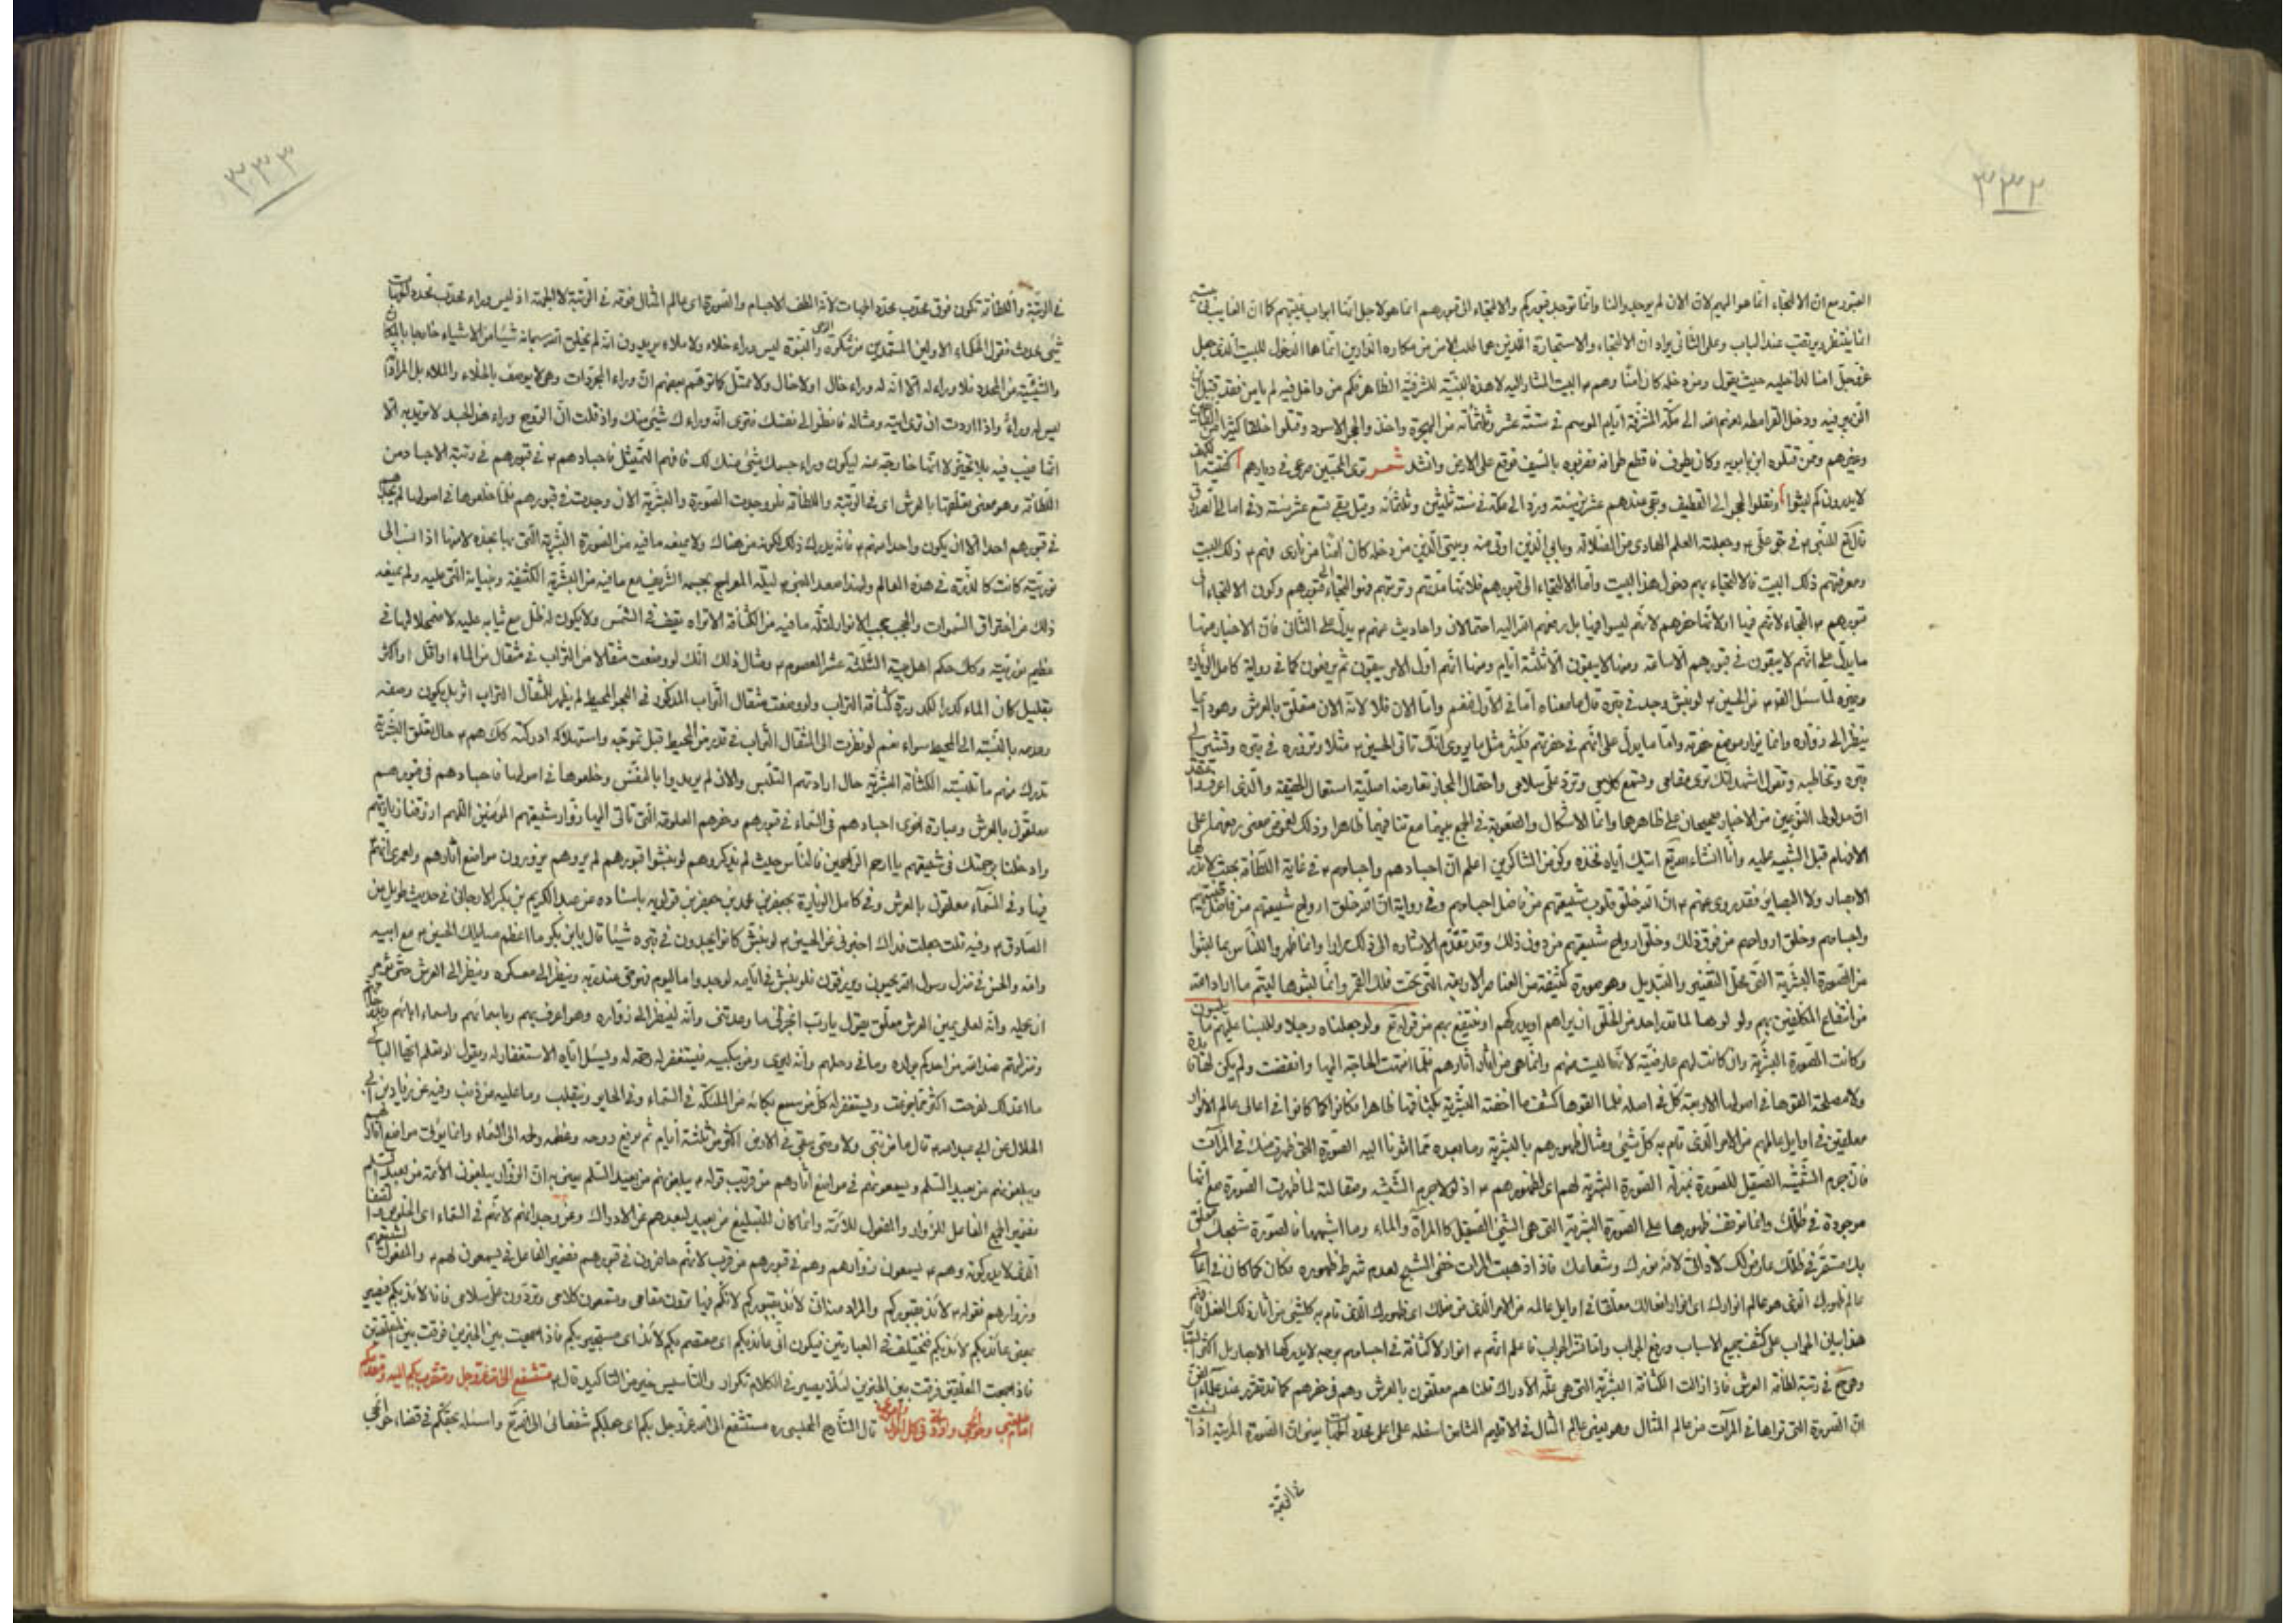 ٣٣٢
القبور مع ان الالتجاء انما هو اليهم لان الان لم يوجد والنا وانما توجد قبوركم والالتجاء الى قبورهم انما هو لاجل انها ابواب غيبتهم كما ان الغايب في بيت
انما ينتظر ويرتقب عند الباب وعلى الثاني يراد ان الالتجاء والاستجارة اللذين هما طلب الامن من مكاره الدارين انما هما الدخول للبيت الذي جعل
عز وجل امنا لداخليه حيث يقول ومن دخله كان امنا وهم ع البيت المشار اليه لا هذه البنية الشرفية الظاهر فكم من داخل فيه لم يامن فقد قتل ابن
الزبير فيه ودخل القرامطة لعنهم الله الى مكة المشرفة ايام الموسم في سنة عشر وثلثمائة من الهجرة واخذوا الحجر الاسود وقتلوا خلقا كثيرا من الحجاج
وغيرهم وممن قتلوه ابن بابويه وكان يطوف فما قطع طوافه فضربوه بالسيف فوقع على الارض وانشد شعر ترى المحبين صرعى في ديارهم كفتية الكهف
لا يدرون كم لبثوا ونقلوا الحجر الى القطيف وبقى عندهم عشرين سنة ورد الى مكة في سنة ثلثين وثلثمائة وقيل بقي تسع عشر سنة وفي امالي الصدوق
قال تع للنبي ص في حق علي ع وجعلته العلم الهادي من الضلالة وبابي الذي اوتى منه وبيتي الذي من دخله كان امنا من ناري فهم ع ذلك البيت
ومعرفتهم ذلك البيت فالالتجاء بهم دخول هذا البيت واما الالتجاء الى قبورهم فلانها مدنهم وتربتهم فهو التجاء الى قبورهم وكون الالتجاء الى
قبورهم ع التجاء لانهم فيها اولا انها حفرهم لانهم ليسوا فيها بل رفعهم الله اليه احتمالان واحاديث عنهم ع يدل على الثاني فان الاخبار منها
ما يدل على انهم لا يبقون في قبورهم الا ساعة ومنها لا يبقون الا ثلثة ايام ومنها انهم اول الامر يبقون ثم يرفعون كما في رواية كامل الزيارة
وغيره لما سئل القوم عن الحسين ع لو نبش وجد في قبره قال ما معناه اما في الاول فنعم واما الان فلا لانه الان متعلق بالعرش وهو دائما
ينظر الى زواره وانما يزار موضع حفرته واما ما يدل على انهم في حفرتهم فكثير مثل ما يروى انك تاتي الحسين ع مثلا وتزوره في قبره وتشير الى
قبره وتخاطبه وتقول اشهد انك ترى مقامي وتسمع كلامي وترد علي سلامي واحتمال المجاز تعارضه اصلية استعمال الحقيقة والذي اعرفه واعتقد
ان مدلول النوعين من الاخبار صحيحان على ظاهرها وانما الاشكال والصعوبة في الجمع بينها مع تنافيهما ظاهرا وذلك لغموض معنى رفعهما على
الافهام قبل التنبيه عليه وانا انشاء الله تع اتيك اياه فخذه وكن من الشاكرين اعلم ان اجسادهم واجسامهم ع في غاية اللطافة بحيث لا تدركها
الابصار ولا البصاير فقد روي عنهم ع ان الله خلق قلوب شيعتهم من فاضل اجسامهم وفي رواية ان الله خلق ارواح شيعتهم من فاضل طينتهم
واجسامهم وخلق ارواحهم من فوق ذلك وخلق ارواح شيعتهم من دون ذلك وقد تقدم الاشارة الى ذلك مرارا وانما ظهروا للناس بما لبثوا
من الصورة البشرية التي محل التغيير والتبديل وهو صورة كثيفة من العناصر الاربعة التي تحت فلك القمر وانما لبثوها ليتم ما اراد الله
من انتفاع المكلفين بهم ولو لم لوها لما قدر احد من الخلق ان يراهم او يدركهم او ينتفع بهم من قوله تع ولو جعلناه رجلا وللبسنا عليهم ما يلبسون
وكانت الصورة البشرية وان كانت لهم عارضية لانها ليست منهم وانما هي من اثار اثارهم فلما انتهت الحاجة اليها وانقضت ولم يكن لها فائدة
ولا مصلحة القوها في اصولها الاربعة كل في اصله فلما القوها كشف ما اخفته البشرية بكثافتها ظاهرا فكانوا كما كانوا في اعالي عالم الانوار
معلقين في اوايل عالمهم من الامر الذي قام به كل شيئ ومثال ظهورهم بالبشرية وما بعده مما اشرنا اليه الصورة التي ظهرت منك في المرآت
فان جرم الشيشة الصقيل للصورة بمنزلة الصورة البشرية لهم اي لظهورهم ع اذ لولا جرم الشيشة ومقابلته لما ظهرت الصورة مع انها
موجودة في ظلك وانما توقف ظهورها على الصورة البشرية التي هي الشيئ الصقيل كالمرآة والماء وما اشبهها فالصورة شبحك متعلق
بك مستقر في ظلك عارض لك لا ذاتي لانه من نورك وشعاعك فاذا ذهبت المرات خفي الشبح لعدم شرط ظهوره فكان كما كان في اعالي
عالم ظهورك الذي هو عالم انوارك اي انوار افعالك معلقا في اوايل عالمه من الامر الذي من فعلك اي ظهورك الذي قام به كلشيئ من اثار ذلك الفعل فهم
هذا بيان الجواب على كشف جميع الاسباب ورفع الحجاب واما قشر الجواب فاعلم انهم ع انوار لا كثافة في اجسامهم بوجه لا يدركها الابصار بل اكثر
وهو في رتبة لطافة العرش فاذا ازالت الكثافة البشرية التي هي علة الادراك قلنا هم معلقون بالعرش وهم في حفرهم كما تقرر عند علماء الفن
ان الصورة التي تراها في المرآت من عالم المثال وهو يعني عالم المثال في الاقليم الثامن اسفله على اعلى محدد الجهات يعني ان الصورة المرئية اذا
في الرتبة
٣٣٣
في الرتبة واللطافة تكون فوق محدب محدد الجهات لانه الطف الاجسام والصورة اي عالم المثال فوقه في الرتبة لا الجهة اذ ليس وراء محدب محدد الجهات
شيئ محدث فقول الحكماء الاولين المستمدين من مشكوة الوحي والنبوة ليس وراءه خلاء ولا ملاء يريدون انه لم يخلق الله سبحانه شيئا من الاشياء خارجا بالمكان
والشيئية من المحدد فلا وراء له الا انه له وراء خال اولا خال ولا ممتل كما توهم بعضهم ان وراء المجردات وهو لا يوصف بالخلاء والملاء بل المراد
ليس له وراء واذا اردت ان ترى ايته ومثاله فانظر الى نفسك فترى انه وراءك شيئ منك واذ قلت ان الروح وراء هذا الجسد لا تريد به الا
انها غيب فيه بلا تحيز لا انها خارجة عنه ليكون وراء جسمك شيئ منك لك فافهم التمثيل فاجسادهم ع في قبورهم في رتبة الاجساد من
اللطافة وهو معنى تعلقها بالعرش اي في الرتبة واللطافة فلو وجدت الصورة والبشرية الان وجدت في قبورهم فلما خلعوها في اصولها لم يجد
في قبورهم احدا الا ان يكون واحدا منهم ع فانه يدرك ذلك لكونه من هناك ولا يمنعه ما فيه من الصورة البشرية التي بها تجده لانها اذا نسب الى
نوريته كانت كالذرة في هذه العالم ولهذا صعد النبي ص ليلة المعراج بجسمه الشريف مع ما فيه من البشرية الكثيفة وبثيابه التي عليه ولم يمنعه
ذلك من اختراق السموات والحجب حجب الانوار لقلة ما فيه من الكثافة الا تراه يقف في الشمس ولا يكون له ظل مع ثيابه عليه لاضمحلالها في
عظيم نوريته وكذلك حكم اهل بيته الثلثة عشر المعصوم ع ومثال ذلك انك لو وضعت مثقالا من التراب في مثقال من الماء او اقل او اكثر
بقليل كان الماء كدرا لكدورة كثافة التراب ولو وضعت مثقال التراب المذكور في البحر المحيط لم يظهر لمثقال التراب اثر بل يكون وضعه
وعدمه بالنسبة الى المحيط سواء نعم لو نظرت الى المثقال التراب في قدر من المحيط قبل تموجه واستهلاكه ادركته كك هم ع حال تعلق البشرية
تدرك منهم ما تلبسته الكثافة البشرية حال ارادتهم التلبس والان لم يريدوا بالمقتضى وخلعوها في اصولها فاجسادهم في قبورهم
معلقون بالعرش وعبارة اخرى اجسادهم في السماء في قبورهم وحفرهم المعلومة التي تاتي اليها زوار شيعتهم المؤمنين اللهم ارزقنا زيارتهم
وادخلنا برحمتك في شيعتهم يا ارحم الراحمين فالناس حيث لم يدركوهم لو نبشوا قبورهم لم يروهم يزورون مواضع اثارهم ولعمري انهم
فيها وفي السماء معلقون بالعرش وفي كامل الزيارة لجعفر بن محمد بن جعفر بن قولويه باسناده عن عبد الكريم بن بكر الارجاني في حديث طويل عن
الصادق ع وفيه قلت جعلت فداك اخبرني عن الحسين ع لو نبش كانوا يجدون في قبره شيئا قال يابن بكر ما اعظم مسايلك الحسين ع مع ابيه
وامه والحسن في منزل رسول الله يحيون ويرزقون فلو نبش في ايامه لوجد واما اليوم فهو حي عند ربه وينظر الى معسكره وينظر الى العرش حتى يؤمر
ان يحمله وانه لعلى يمين العرش متعلق يقول يارب انجز لي ما وعدتني وانه لينظر الى زواره وهو اعرف بهم وباسمائهم واسماء ابائهم وبدرجاتهم
ومنزلتهم عند الله من احدكم بولده وما في رحلهم وانه ليرى ومن يبكيه فيستغفر له رحمة له ويسئل اباه الاستغفار له ويقول لو تعلم ايها الباكي
ما اعد لك لفرحت اكثر مما جزعت ويستغفر له كل من سمع بكائه من الملئكة في السماء وفي الحاير وينقلب وما عليه من ذنب وفيه عن زياد بن ابي
الحلال عن ابي عبد الله ع قال ما من نبي ولا وصي يبقى في الارض اكثر من ثلثة ايام ثم يرفع روحه وعظمه ولحمه الى السماء وانما يؤتى مواضع اثارهم
ويبلغونهم من بعيد السلم ويسمعونهم في مواضع اثارهم من قريب قوله ع يبلغونهم من بعيد السلم يعني به ان الزوار يبلغون الائمة من بعيد السلم
فضمير الجمع الفاعل للزوار والمفعول للائمة وانما كان للتبليغ من بعيد لبعدهم عن الادراك وعن وجدانهم لانهم في السماء اي
الذي لا يدركونه وهم ع يسمعون زوارهم وهم في قبورهم من قرب لانهم حاضرون في قبورهم فضمير الفاعل في يسمعون لهم ع والمفعول لشيعتهم
وزوارهم فقوله ع لائذ بقبوركم والمراد منه ان لائذ بقبوركم لانكم فيها ترون مقامي وتسمعون كلامي وتردون علي سلامي فانا لائذ بكم فيصير
بمعنى عائذ بكم لائذ بكم فتختلف في العبارتين فيكون اني عائذ بكم اي معتصم بكم لائذ اي مستجير بكم فاذا جمعت بين الخبرين فرقت بين المتعلقين
فاذا جمعت المتعلقين فرقت بين الخبرين لئلا يصير في الكلام تكرار والتاسيس خير من التاكيد قال ع مستشفع الى الله عز وجل ومتقرب بكم اليه ومقدمكم
امام طلبتي وحوائجي وارادتي في كل احوالي واموري قال الشارح المجلسي ره مستشفع الى الله عز وجل بكم اي جعلكم شفعائي الى الله تع واسئله بحقكم في قضاء حوائجي